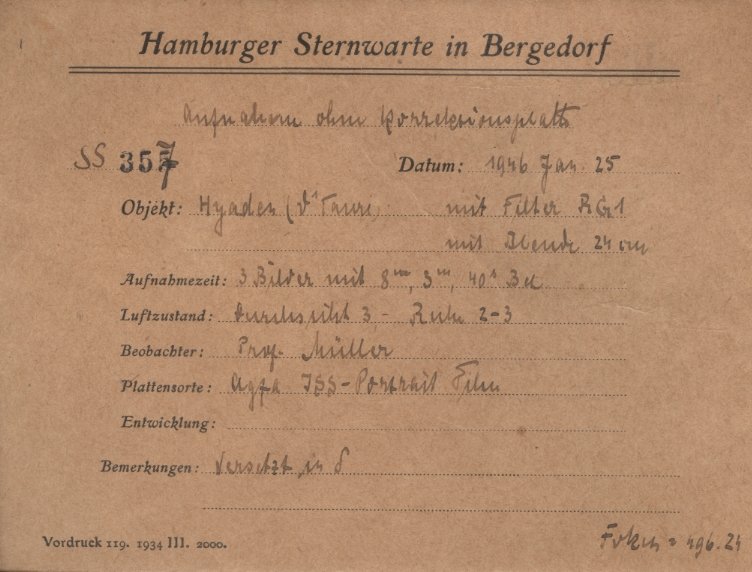 Hamburger Sternwarte in Bergedorf
Aufnahmen ohne Korrektionsplatte
SS 357 Datum: 1946 Jan. 25
Objekt: Hyaden (ϑ¹ Tauri) mit Filter RG1
mit Blende 24 cm
Aufnahmezeit: 3 Bilder mit 8ᵐ, 3ᵐ, 40ˢ Bel.
Luftzustand: Durchsicht 3 - Ruhe 2-3
Beobachter: Prof. Müller
Plattensorte: Agfa ISS-Portrait Film
Entwicklung:
Bemerkungen: Versetzt in δ
Vordruck 119. 1934 III. 2000. Fokus = 496.24